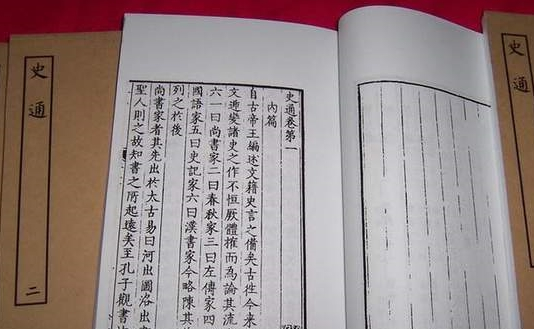 史通
史通卷第一
內篇
自古帝王編述文籍史言之備矣古往今來
文遞變諸史之作不恒厥體榷而為論其流
六一曰尚書家二曰春秋家三曰左傳家四
國語家五曰史記家六曰漢書家今略陳其
列之於後
尚書家者其先出於太古易曰河出圖洛出
聖人則之故知書之所起遠矣至孔子觀書
史通
二